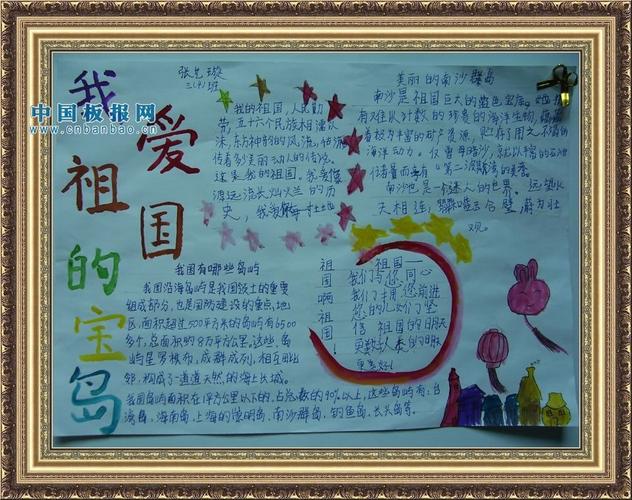 我爱祖国的宝岛
中国板报网
www.cnbanbao.cn
张艺璇
三(4)班
我的祖国，人民勤
劳，五十六个民族相濡以
沫，东方神韵的风范，
传着多少美丽动人的传说。
这是我的祖国。我爱您
源远流长灿烂的历
史，我爱您每寸土地
美丽的南沙群岛
南沙是祖国巨大的蓝色宝库。她拥
有难以计数的珍贵的海洋生物，蕴藏
着极为丰富的矿产资源，贮存了用之不竭的
海洋动力。仅曾母暗沙，就以丰富的石油
储量而享有“第二波斯湾”的美誉。
南沙也是一个迷人的世界，远望水
天相连，
观。
我国有哪些岛屿
我国沿海岛屿是我国领土的重要
组成部分，也是国防建设的重点，地
区，面积超过500平方米的岛屿有6500
多个，总面积约8万平方公里，这些岛
屿星罗棋布，成群成列，相互毗
邻，构成了一道道天然的海上长城。
我国岛屿面积在1平方公里以下的，占总数的90%以上，这些岛屿有：台
湾岛，海南岛，上海的崇明岛，南沙群岛，钓鱼岛，长兴岛等。
祖国啊祖国
祖国——
我们与您同心
我们才拥您前进
您的儿女们坚
信祖国的明天
更好！